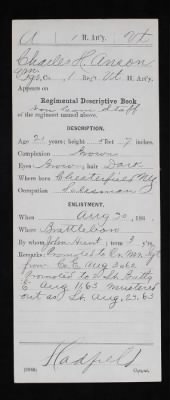 A | 1 H. Art'y. | Vt
Charles H. Anson
Co. , 1 Reg't Vt H. Art'y.
Appears on
Regimental Descriptive Book
of the regiment named above.
DESCRIPTION.
Age 21 years; height 5 feet 7 inches.
Complexion Brown
Eyes Brown; hair Dark
Where born Chesterfield NY
Occupation Salesman
ENLISTMENT.
When Aug 20, 186 .
Where Brattleboro
By whom John Hunt; term 3 y'rs.
Remarks: Promoted to Qr. Mr. Sgt
from Co E Aug 30 62
promoted to Lt. Batty
E Aug 11, 63 mustered
out as Sgt. Aug 23, 63
Hadfield
Copyist.